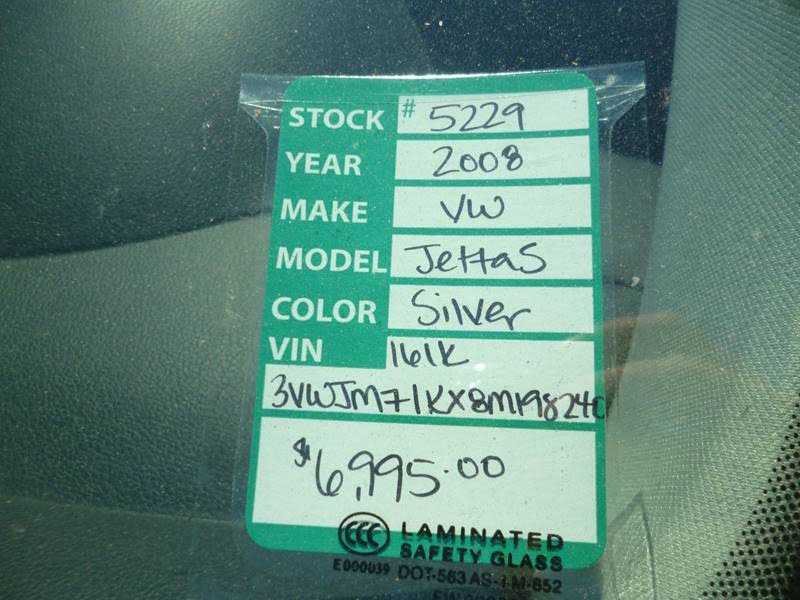 STOCK # 5229
YEAR 2008
MAKE VW
MODEL Jetta S
COLOR Silver
VIN 161K
3VWJM71KX8M198240
$6,995.00
CCC LAMINATED
SAFETY GLASS
E000039 DOT-563 AS-1 M-652